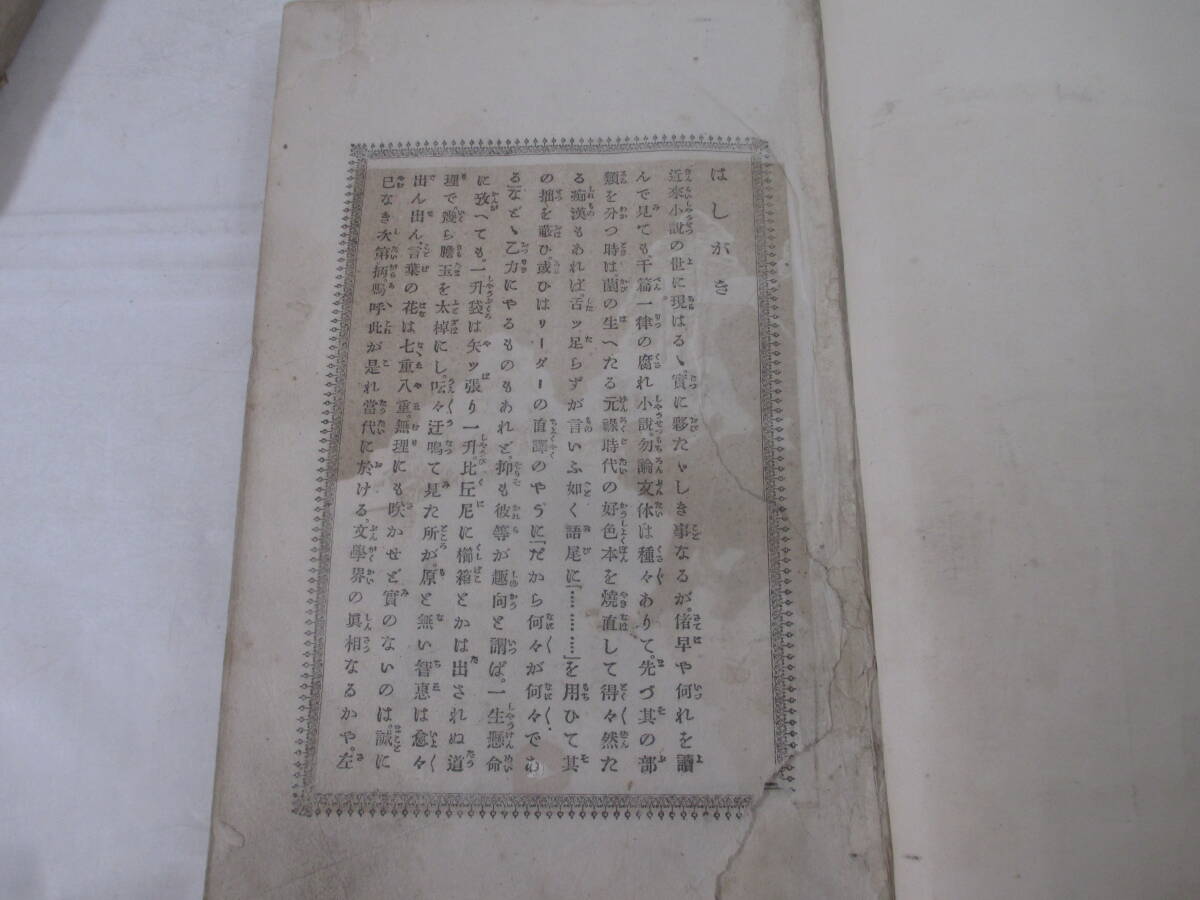 はしがき
近來小說の世に現はるゝ、實に夥たゞしき事なるが、偖早や何れを讀
んで見ても、千篇一律の腐れ小說、勿論文体は種々ありて、先づ其の部
類を分つ時は、蘭の生へたる元祿時代の好色本を燒直して得々然た
る痴漢もあれば、舌ッ足らずが言いふ如く語尾に「…………」を用ひて其
の拙を蔽ひ、或ひはリーダーの直譯のやうに「だから何々が何々であ
る」などゝ乙方にやるものもあれど、抑も彼等が趣向と謂ば、一生懸命
に攷へても、一升袋は矢ッ張り一升、比丘尼に櫛箱とかは出されぬ道
理で、幾ら膽玉を太棹にし、呍々迂鳴て見た所が、原と無い智惠は愈々
出ん出ん、言葉の花は七重八重、無理にも咲かせど實のないのは、誠に
已なき次第柄、嗚呼此が是れ當代に於ける、文學界の眞相なるかや、左